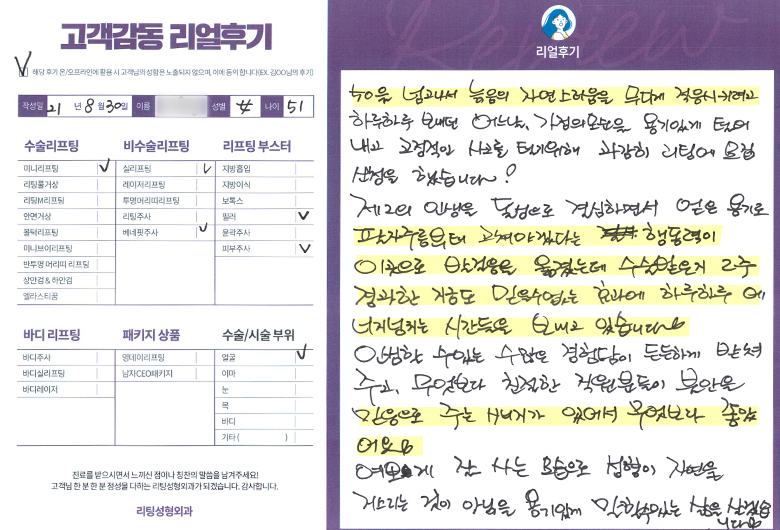 고객감동 리얼후기
해당 후기 온/오프라인에 활용 시 고객님의 성함은 노출되지 않으며, 이에 동의 합니다(EX. 김OO님의 후기)
작성일 21 년 8 월 30일 이름 성별 女 나이 51
수술리프팅 비수술리프팅 리프팅 부스터
미니리프팅 실리프팅 지방흡입
리팅풀거상 레이저리프팅 지방이식
리팅M리프팅 투명머리띠리프팅 보톡스
안면거상 리팅주사 필러
볼턱리프팅 베네핏주사 윤곽주사
미니브이리프팅 피부주사
반투명 머리띠 리프팅
상안검 & 하안검
엘라스티꿈
바디 리프팅 패키지 상품 수술/시술 부위
바디주사 영데이리프팅 얼굴
바디실리프팅 남자CEO패키지 이마
바디레이저 눈
목
바디
기타 ( )
진료를 받으시면서 느끼신 점이나 칭찬의 말씀을 남겨주세요!
고객님 한 분 한 분 정성을 다하는 리팅성형외과가 되겠습니다. 감사합니다.
리팅성형외과
Review
리얼후기
50을 넘고나서 늙음의 자연스러움을 무디게 적응시키려고
하루하루 보내던 어느날, 가정의 모든을 용기있게 털어
내고 고정적인 사고를 털기위해 과감히 리팅에 모험
신청을 했습니다!
제2의 인생을 돌싱으로 결심하면서 얻은 용기로
팔자주름부터 고쳐야겠다는 행동력이
이곳으로 발걸음을 옮겼는데 수술받은지 2주
경과한 지금도 믿을수없는 효과에 하루하루 에
너지넘치는 시간들을 보내고 있습니다.
안심할 수있는 수많은 경험담이 든든하게 받쳐
주고, 무엇보다 친절한 직원분들이 불안을
믿음으로 주는 시너지가 있어서 무엇보다 좋았
어요.
여보게 잘 사는 모습으로 성형이 자연을
거스르는 것이 아님을 용기있게 말할수있는 삶을 살겠습
니다.